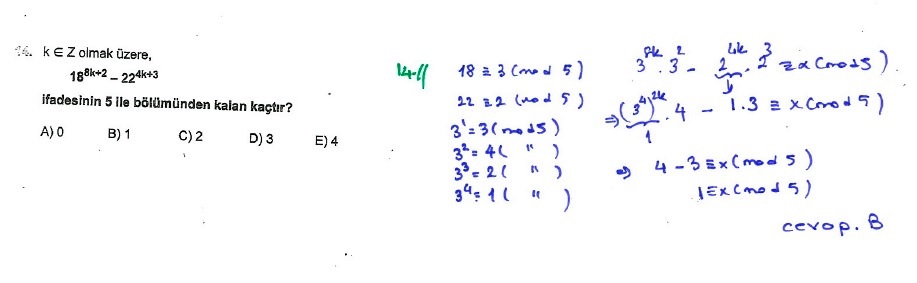 14. k ∈ Z olmak üzere,
18^(8k+2) – 22^(4k+3)
ifadesinin 5 ile bölümünden kalan kaçtır?
A) 0 B) 1 C) 2 D) 3 E) 4
14-//
18 ≡ 3 (mod 5)
22 ≡ 2 (mod 5)
3^1 = 3 (mod 5)
3^2 = 4 ( " )
3^3 = 2 ( " )
3^4 = 1 ( " )
3^8k . 3^2 - 2^4k . 2^3 ≡ x (mod 5).
⇒ (3^4)^2k . 4 - 1.3 ≡ x (mod 5)
1
⇒ 4 - 3 ≡ x (mod 5)
1 ≡ x (mod 5)
cevap. B